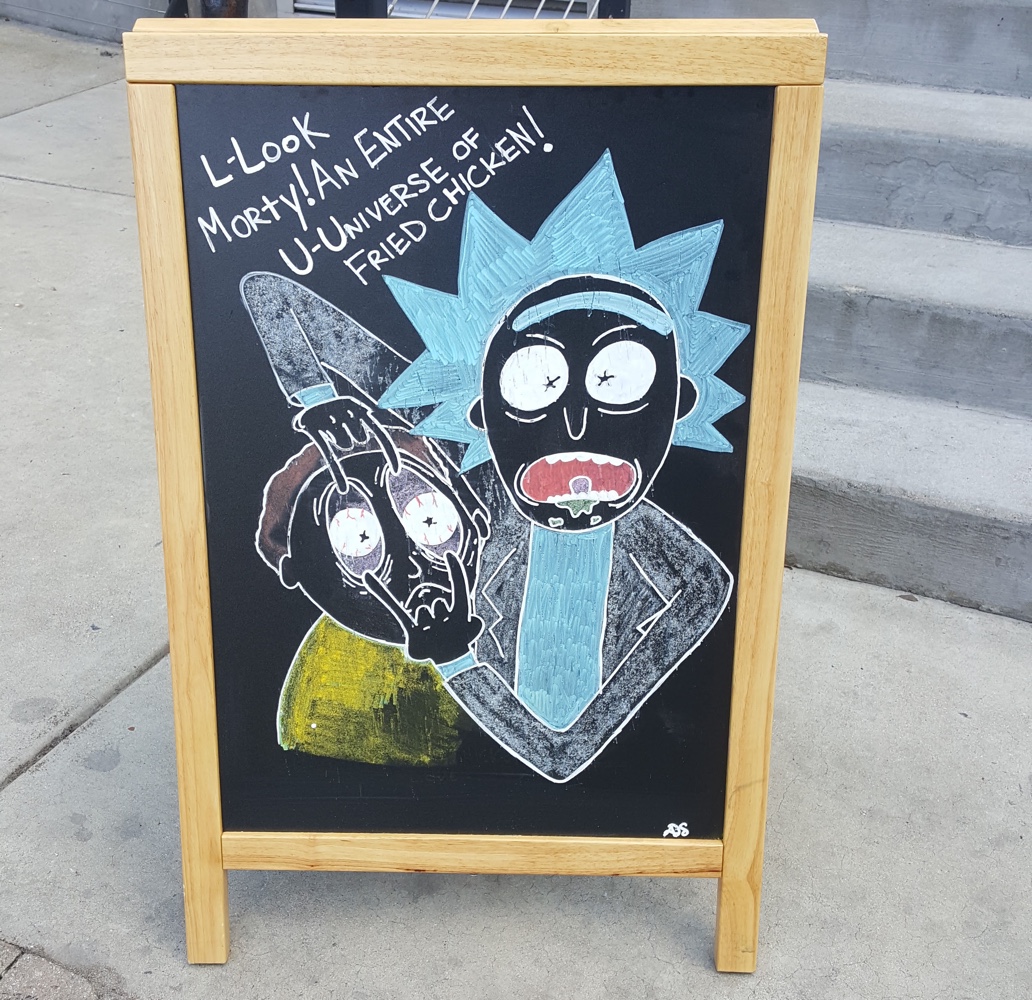 L-LOOK
MORTY! AN ENTIRE
U-UNIVERSE OF
FRIED CHICKEN!